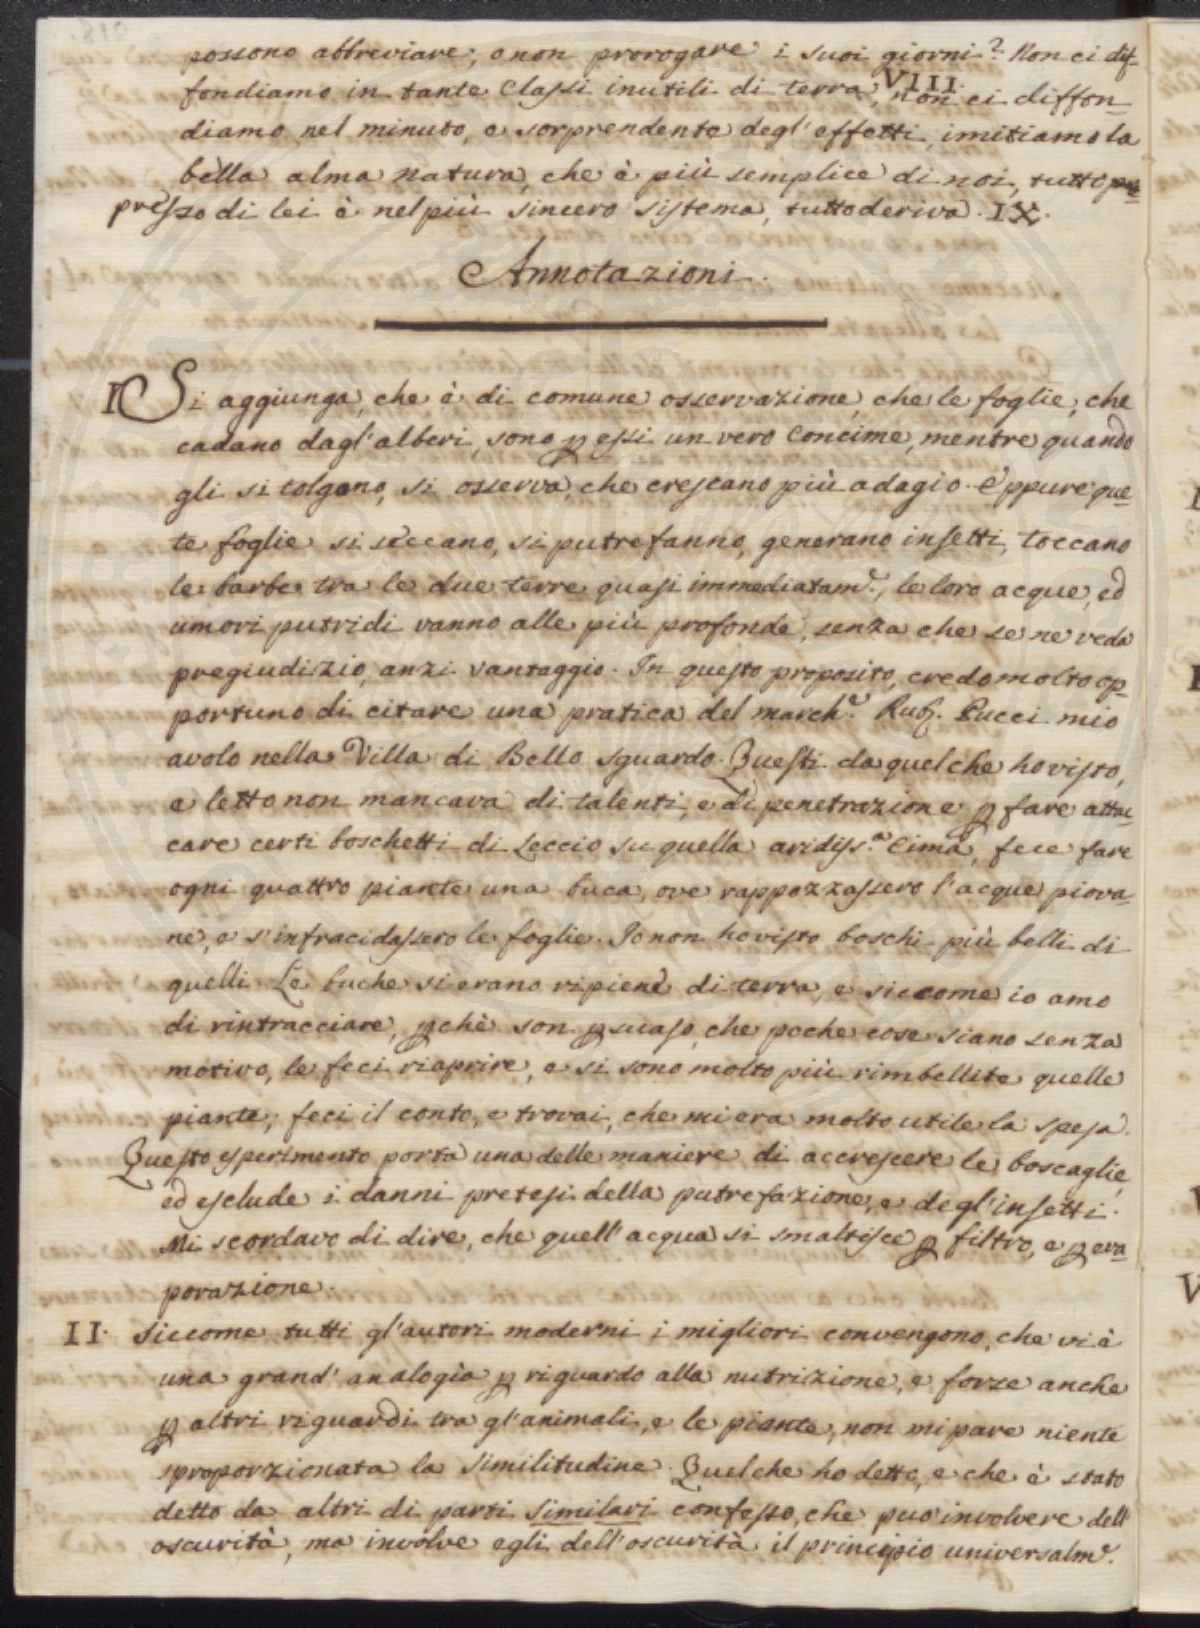 possono abbreviare, o non prorogare i suoi giorni? Non ci dif-
fondiamo in tante Classi inutili di terra, VIII. non ci diffon-
diamo nel minuto, e sorprendente degl'effetti, imitiamo la
bella alma natura, che è più semplice di noi, tutto
presso di lei è nel più sincero sistema, tutto deriva. IX.
Annotazioni.
I Si aggiunga, che è di comune osservazione, che le foglie, che
cadano dagl'alberi, sono p essi un vero Concime, mentre quando
gli si tolgono, si osserva, che crescano più adagio. Eppure que-
te foglie si seccano, si putrefanno, generano insetti, toccano
le barbe tra le due terre quasi immediatam.e, le loro acque, ed
umori putridi vanno alle più profonde, senza che se ne veda
pregiudizio, anzi vantaggio. In questo proposito, credo molto op-
portuno di citare una pratica del march.e Rub. Pucci mio
avolo nella Villa di Bello sguardo. Questi da quel che ho visto,
e letto non mancava di talenti, e di penetrazione p fare attac-
care certi boschetti di Leccio su quella aridiss.a Cima, fece fare
ogni quattro piante una buca, ove rappozzassero l'acque piova-
ne, e s'infracidassero le foglie. Io non ho visto boschi più belli di
quelli Le buche si erano ripiene di terra, e siccome io amo
di rintracciare, pchè son psuaso, che poche cose siano senza
motivo, le feci riaprire, e si sono molto più rimbellite quelle
piante, feci il conto, e trovai, che mi era molto utile la spesa.
Questo esperimento porta una delle maniere di accrescere le boscaglie,
ed esclude i danni pretesi della putrefazione, e degl'insetti.
Mi scordavo di dire, che quell'acqua si smaltisce p filtro, e p eva-
porazione.
II. Siccome tutti gl'autori moderni i migliori convengono, che vi è
una grand'analogia p riguardo alla nutrizione, e forze anche
p altri riguardi tra gl'animali, e le piante, non mi pare niente
sproporzionata la Similitudine. Quel che ho detto, e che è stato
detto da altri di parti Similari confesso, che può involvere dell'
oscurità, ma involve egli dell'oscurità il principio universalm.e